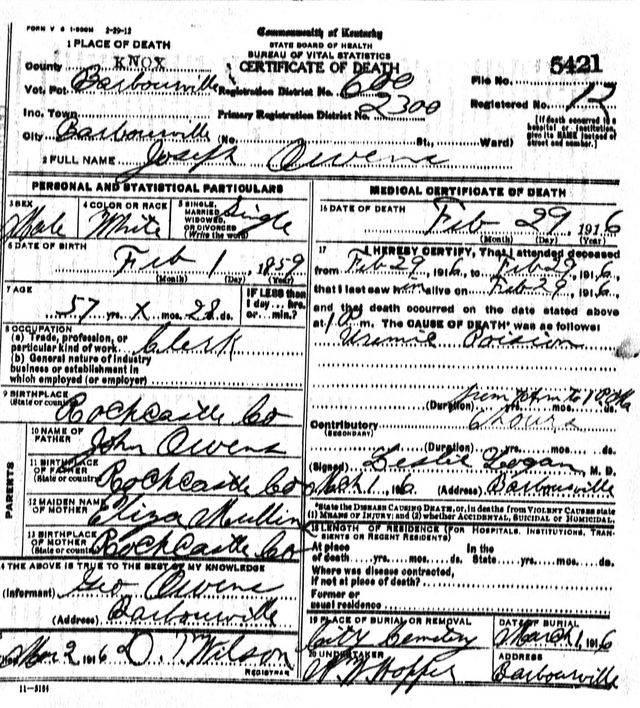 FORM V S 1-500M 2-29-12
Commonwealth of Kentucky
STATE BOARD OF HEALTH
BUREAU OF VITAL STATISTICS
CERTIFICATE OF DEATH
5421
1 PLACE OF DEATH
County KNOX
Vot. Pct. Barbourville Registration District No. 600 File No.
Inc. Town Primary Registration District No. 2300 Registered No. 12
City Barbourville (No. St., Ward)
[If death occurred in a hospital or institution, give its NAME instead of street and number.]
2 FULL NAME Joseph Owens
PERSONAL AND STATISTICAL PARTICULARS
3 SEX Male
4 COLOR OR RACE White
5 SINGLE, MARRIED WIDOWED, OR DIVORCED (Write the word) Single
6 DATE OF BIRTH
Feb 1 1859
(Month) (Day) (Year)
7 AGE
57 yrs. X mos. 28 ds.
IF LESS than 1 day... hrs. or... min.?
8 OCCUPATION
(a) Trade, profession, or particular kind of work Clerk
(b) General nature of industry business or establishment in which employed (or employer)
9 BIRTHPLACE
(State or country) Rockcastle Co
PARENTS
10 NAME OF FATHER John Owens
11 BIRTHPLACE OF FATHER (State or country) Rockcastle Co
12 MAIDEN NAME OF MOTHER Eliza Mullin
13 BIRTHPLACE OF MOTHER (State or country) Rockcastle Co
14 THE ABOVE IS TRUE TO THE BEST OF MY KNOWLEDGE
(Informant) Geo Owens
(Address) Barbourville
Mar 2 1916 Wilson
REGISTRAR
11-3184
MEDICAL CERTIFICATE OF DEATH
16 DATE OF DEATH
Feb 29 1916
(Month) (Day) (Year)
17 I HEREBY CERTIFY, That I attended deceased
from Feb 29, 1916, to Feb 29, 1916,
that I last saw him alive on Feb 29, 1916,
and that death occurred on the date stated above
at 10 P m. The CAUSE OF DEATH* was as follows:
Uremic Poision
(Duration) yrs. mos. ds.
Contributory
(SECONDARY)
(Duration) yrs. mos. ds.
(Signed) Leslie Logan, M. D.
Mch 1, 1916 (Address) Barbourville
*State the DISEASE CAUSING DEATH, or, in deaths from VIOLENT CAUSES state (1) MEANS OF INJURY; and (2) whether ACCIDENTAL, SUICIDAL OR HOMICIDAL.
18 LENGTH OF RESIDENCE (FOR HOSPITALS, INSTITUTIONS, TRANSIENTS OR RECENT RESIDENTS)
At place In the
of death yrs. mos. ds. State yrs. mos. ds.
Where was disease contracted,
if not at place of death?
Former or
usual residence
19 PLACE OF BURIAL OR REMOVAL City Cemetery
DATE OF BURIAL March 1, 1916
20 UNDERTAKER Hopper
ADDRESS Barbourville